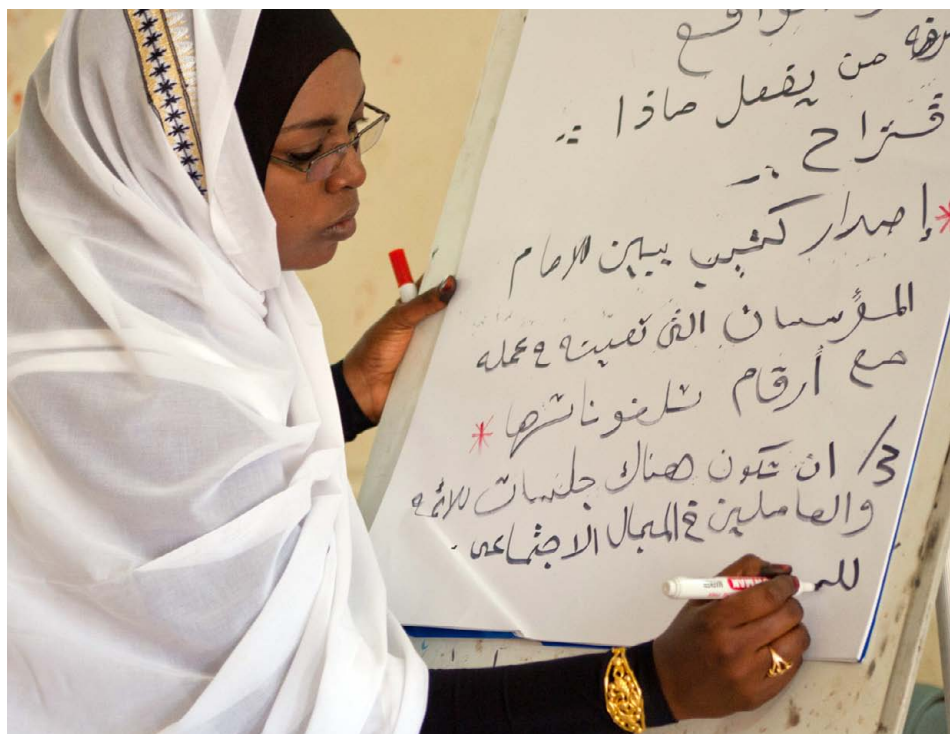 الواقع
من يفعل ماذا ..
قتراح ..
* إصدار كتيب يبين للامام
المؤسسات التى تعينه في عمله
مع أرقام تلفوناتها *
3/ ان تكون هناك جلسات للائمه
والعاملين في المجال الاجتماعى .